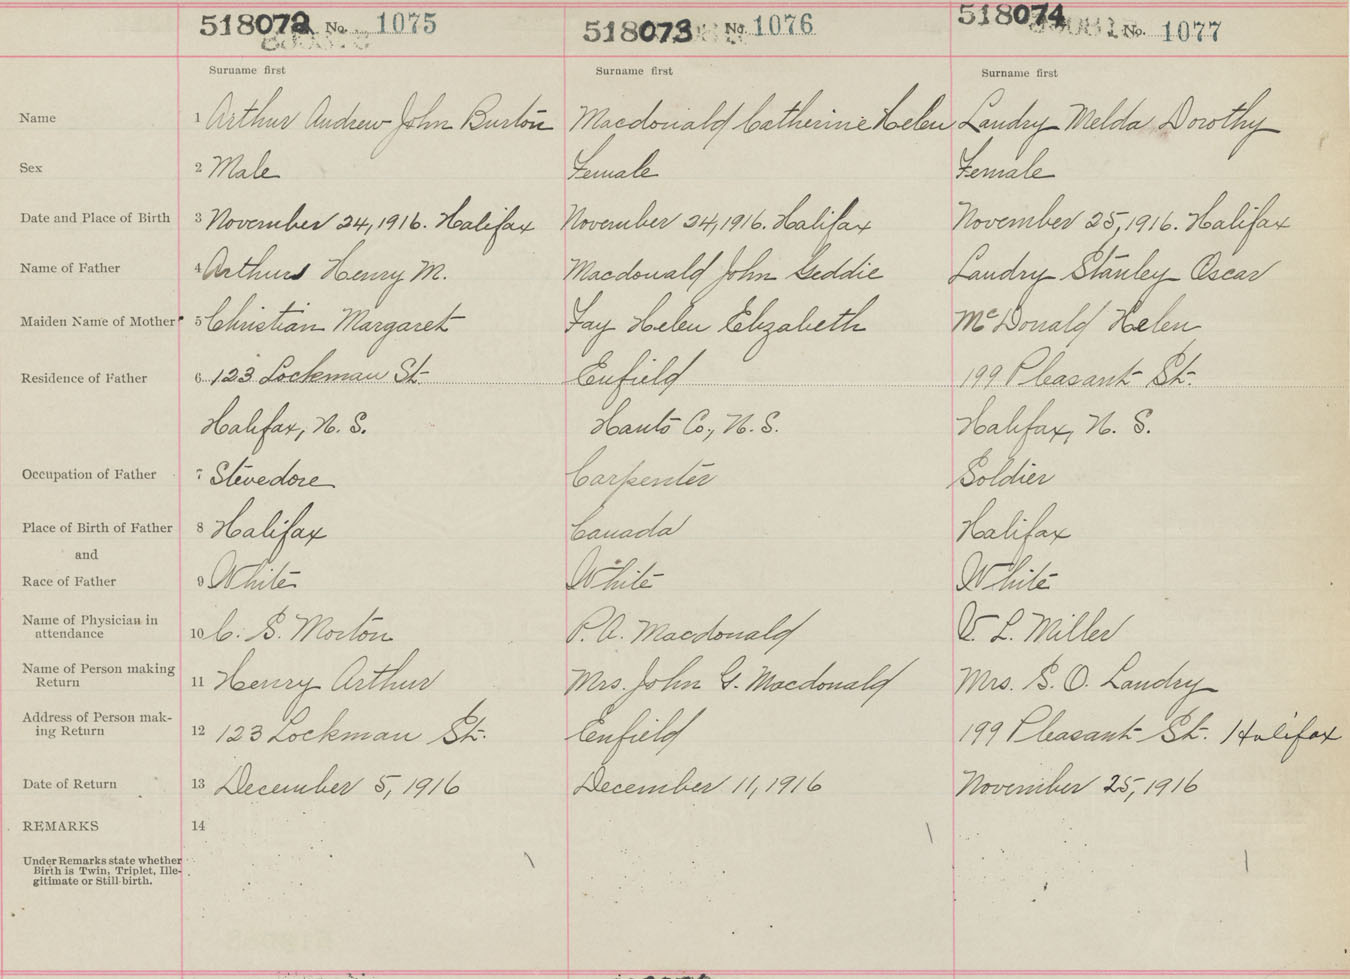 518072 No. 1075 518073 No. 1076 518074 No. 1077
Surname first Surname first Surname first
Name 1 Arthur Andrew John Burton Macdonald Catherine Helen Landry Melda Dorothy
Sex 2 Male Female Female
Date and Place of Birth 3 November 24, 1916. Halifax November 24, 1916. Halifax November 25, 1916. Halifax
Name of Father 4 Arthur Henry M. Macdonald John Geddie Landry Stanley Oscar
Maiden Name of Mother 5 Christian Margaret Fay Helen Elizabeth McDonald Helen
Residence of Father 6 123 Lockman St. Enfield 199 Pleasant St.
Halifax, N. S. Hants Co., N. S. Halifax, N. S.
Occupation of Father 7 Stevedore Carpenter Soldier
Place of Birth of Father 8 Halifax Canada Halifax
and
Race of Father 9 White White White
Name of Physician in
attendance 10 C. S. Morton P. A. Macdonald V. L. Miller
Name of Person making
Return 11 Henry Arthur Mrs. John G. Macdonald Mrs. S. O. Landry
Address of Person mak-
ing Return 12 123 Lockman St. Enfield 199 Pleasant St. Halifax
Date of Return 13 December 5, 1916 December 11, 1916 November 25, 1916
REMARKS 14
Under Remarks state whether
Birth is Twin, Triplet, Ille-
gitimate or Still-birth.